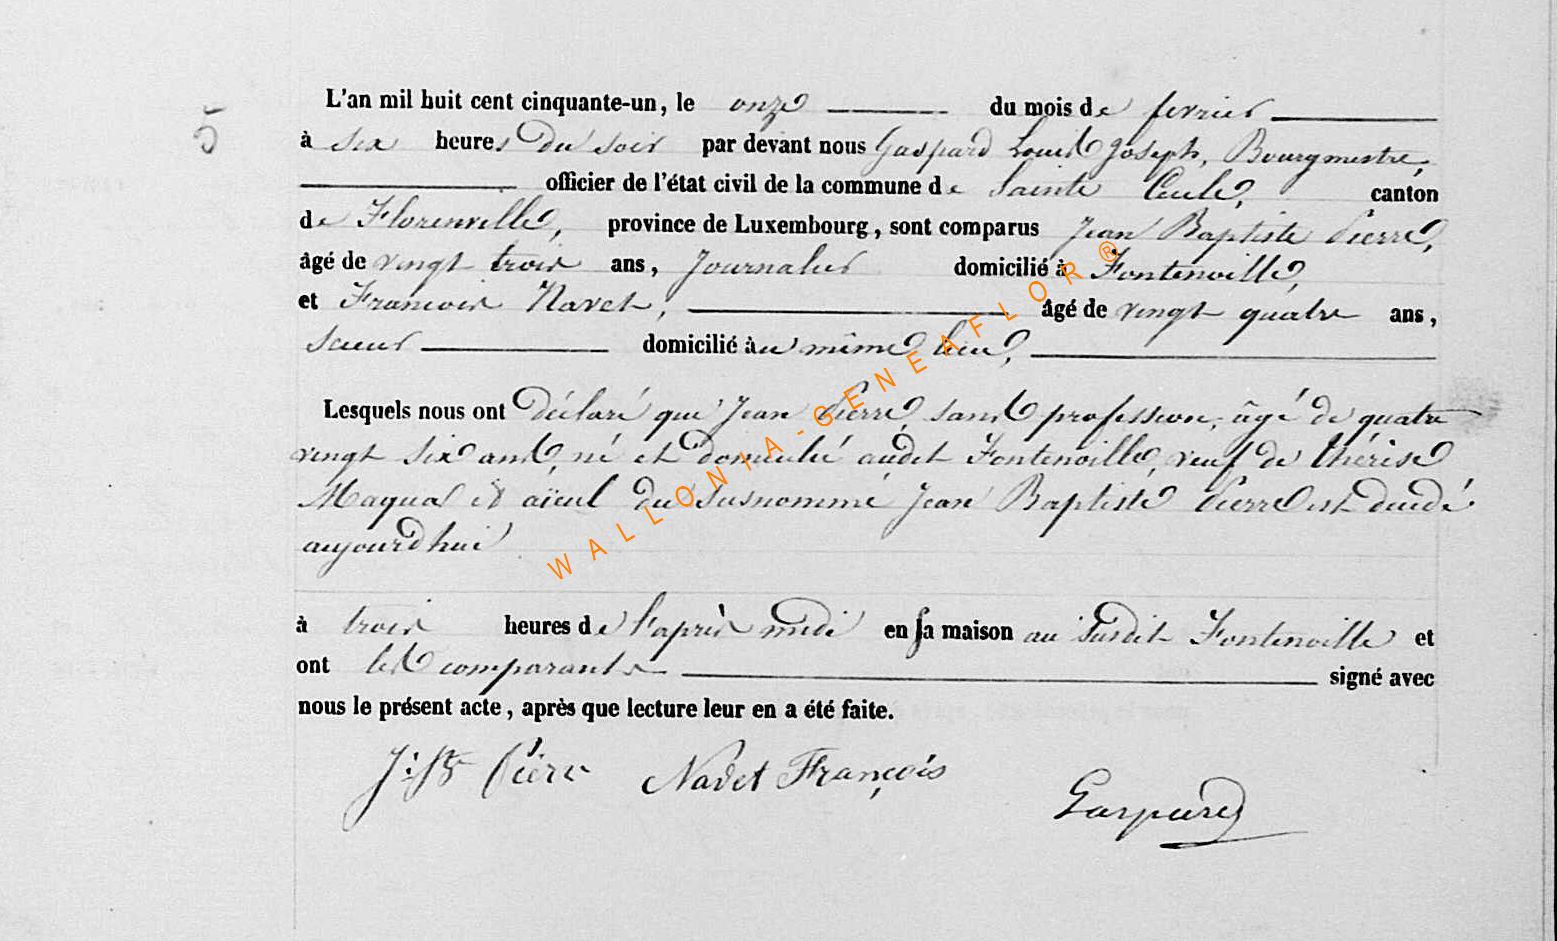 5
L'an mil huit cent cinquante-un, le onze du mois de fevrier
à six heures du soir par devant nous Gaspard Louis Joseph, Bourgmestre,
officier de l'état civil de la commune de Sainte Cecile, canton
de Florenville, province de Luxembourg, sont comparus Jean Baptiste Pierre,
âgé de vingt trois ans, Journalier domicilié à Fontenoille,
et Francois Navet, âgé de vingt quatre ans,
Scieur domicilié au même lieu,
Lesquels nous ont déclaré que Jean Pierre, sans profession, âgé de quatre
vingt six ans, né et domicilié audit Fontenoille, veuf de thérèse
Maqua et aïeul du susnommé Jean Baptiste Pierre est décédé
aujourd'hui
à trois heures de l'après midi en sa maison au susdit Fontenoille et
ont les comparants signé avec
nous le présent acte, après que lecture leur en a été faite.
J: Bte Pierre Navet François
Gaspard
WALLONIA-GENEAFLOR®